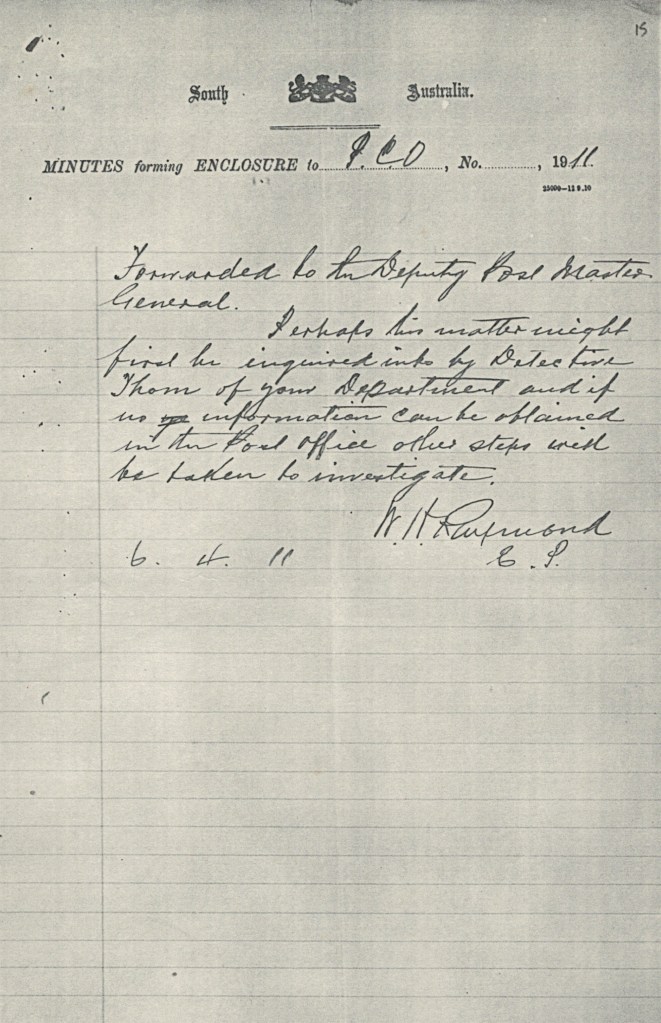 15
South Australia.
MINUTES forming ENCLOSURE to P.C.O, No. , 1911.
25000—12 9.10
Forwarded to the Deputy Post Master
General.
Perhaps this matter might
first be inquired into by Detective
Thom of your Department and if
no information can be obtained
in the Post Office other steps will
be taken to investigate.
W. H. Raymond
6. 4. 11